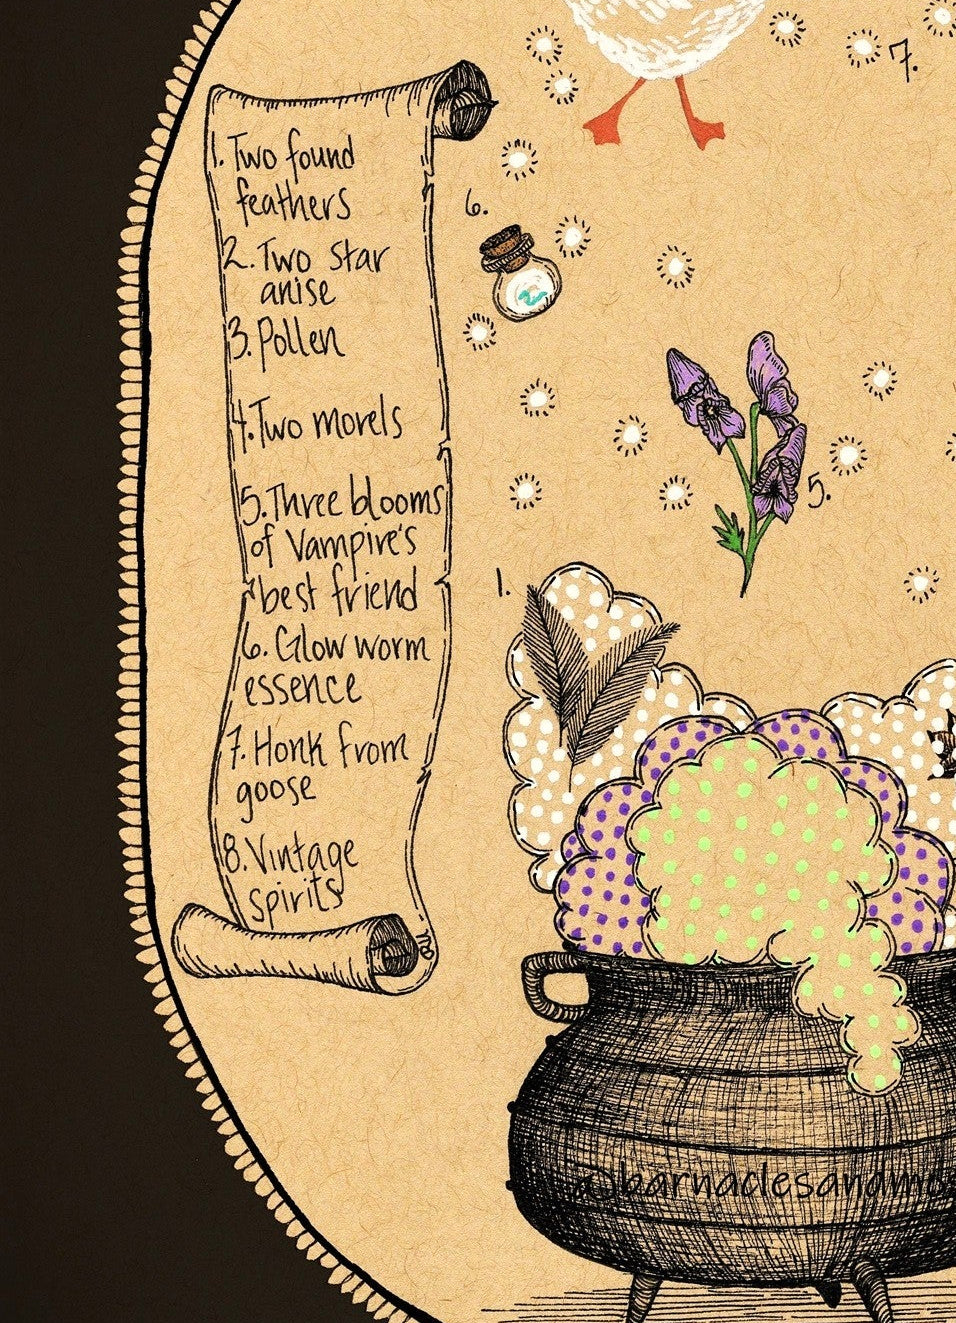 1. Two found
feathers
2. Two star
anise
3. Pollen
4. Two morels
5. Three blooms
of Vampire's
best friend
6. Glow worm
essence
7. Honk from
goose
8. Vintage
spirits
7.
6.
5.
1.
@barnaclesandmo